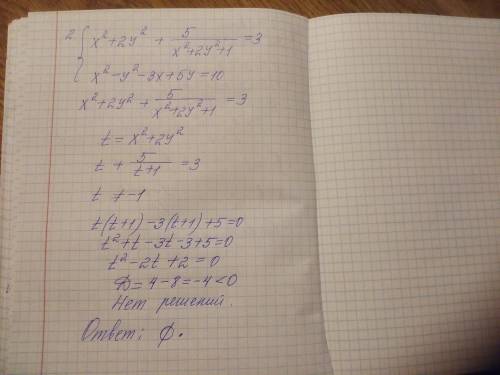 2 { x² + 2y² + 5/(x²+2y²+1) = 3
x² - y² - 3x + 5y = 10
x² + 2y² + 5/(x²+2y²+1) = 3
t = x² + 2y²
t + 5/(t+1) = 3
t ≠ -1
t(t+1) - 3(t+1) + 5 = 0
t² + t - 3t - 3 + 5 = 0
t² - 2t + 2 = 0
D = 4 - 8 = -4 < 0
Нет решений.
Ответ: ∅.